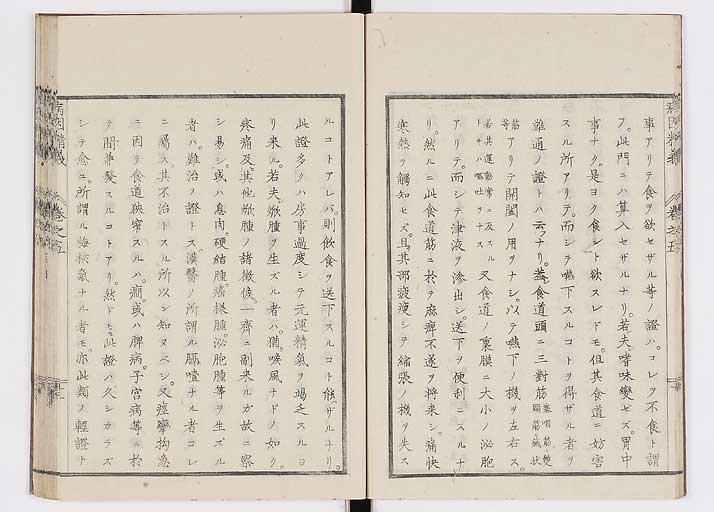 事アリテ食ヲ欲セザル等ノ證ハ。コレヲ不食ト謂
フ。此門ニハ算入セザルナリ。若夫。嗜味變セズ。胃中
事ナク。是ヨク食シト欲スレドモ。但其食道ニ妨害
スル所アリテ。而シテ嚥下スルコトヲ得ザル者ヲ
難通ノ證トハ云フナリ。蓋食道頭ニ三對筋
筋等アリテ開闔ノ用ヲナシ。以テ嚥下ノ機ヲ左右ス。
若其運動常ニ反スルトキハ嘔吐ヲナス
又食道ノ裏膜ニ大小ノ泌胞
アリテ。而シテ津液ヲ滲出シ。送下ヲ便利ニスルナ
リ。然ルニ此食道筋ニ於テ麻痺不遂ヲ將來シ。痛快
寒熱ヲ觸知セズ。且其部疲瘦シテ縮張ノ機ヲ失ス
病因精義
卷之五
ルコトアレバ。則飲食ヲ送下スルコト能ハザルナリ。
此證多クハ房事過度シテ元運精氣ヲ竭乏スルヨ
リ來ル。若夫。焮腫ヲ生ズル者ハ。猶喉風ナドノ如ク。
疼痛及其他焮腫ノ諸徴候。一齊ニ副來ルガ故ニ察
シ易シ。或ハ息肉。硬結腫。癌樣腫。泌胞腫等ヲ生ズル
者ハ。難治ノ證トス。漢醫ノ所謂ル膈噎ナル者コレ
ニ屬ス。其不治トスル所以シ知ヌベシ。又痙攣拘急
ニ因テ食道狹窄スルハ。癇。或ハ脾病。子宮病等ニ於
テ間兼發スルコトアリ。然ドモ此證ハ久シカラズ
シテ愈ユ。所謂ル梅核氣ナル者モ。亦此類ノ輕證ト
病因精義
卷之五